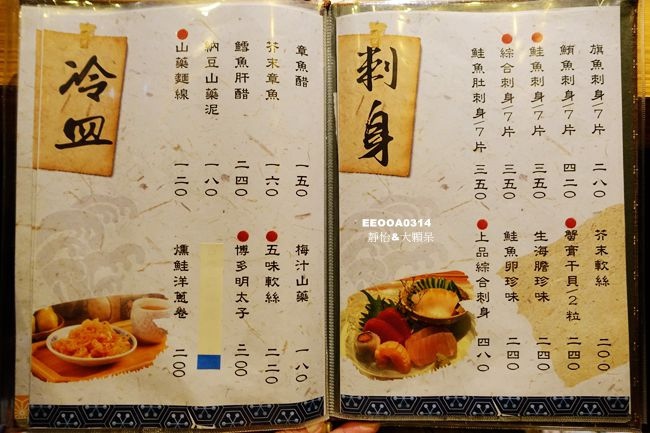 刺身
旗魚刺身/7片 二八〇
鮪魚刺身/7片 四二〇
鮭魚刺身/7片 三五〇
綜合刺身/7片 三五〇
鮭魚肚刺身/7片 三五〇
芥末軟絲 二〇〇
蟹膏干貝/2粒 二四〇
生海膽珍味 二四〇
鮭魚卵珍味 二四〇
上品綜合刺身 四八〇
EEOOA0314
靜怡&大顆呆
冷皿
章魚醋 一五〇
芥末章魚 一六〇
鱈魚肝醋 二四〇
納豆山藥泥 一八〇
山藥麵線 一二〇
梅汁山藥 一八〇
五味軟絲 二二〇
博多明太子 二〇〇
燻鮭洋蔥卷 二〇〇